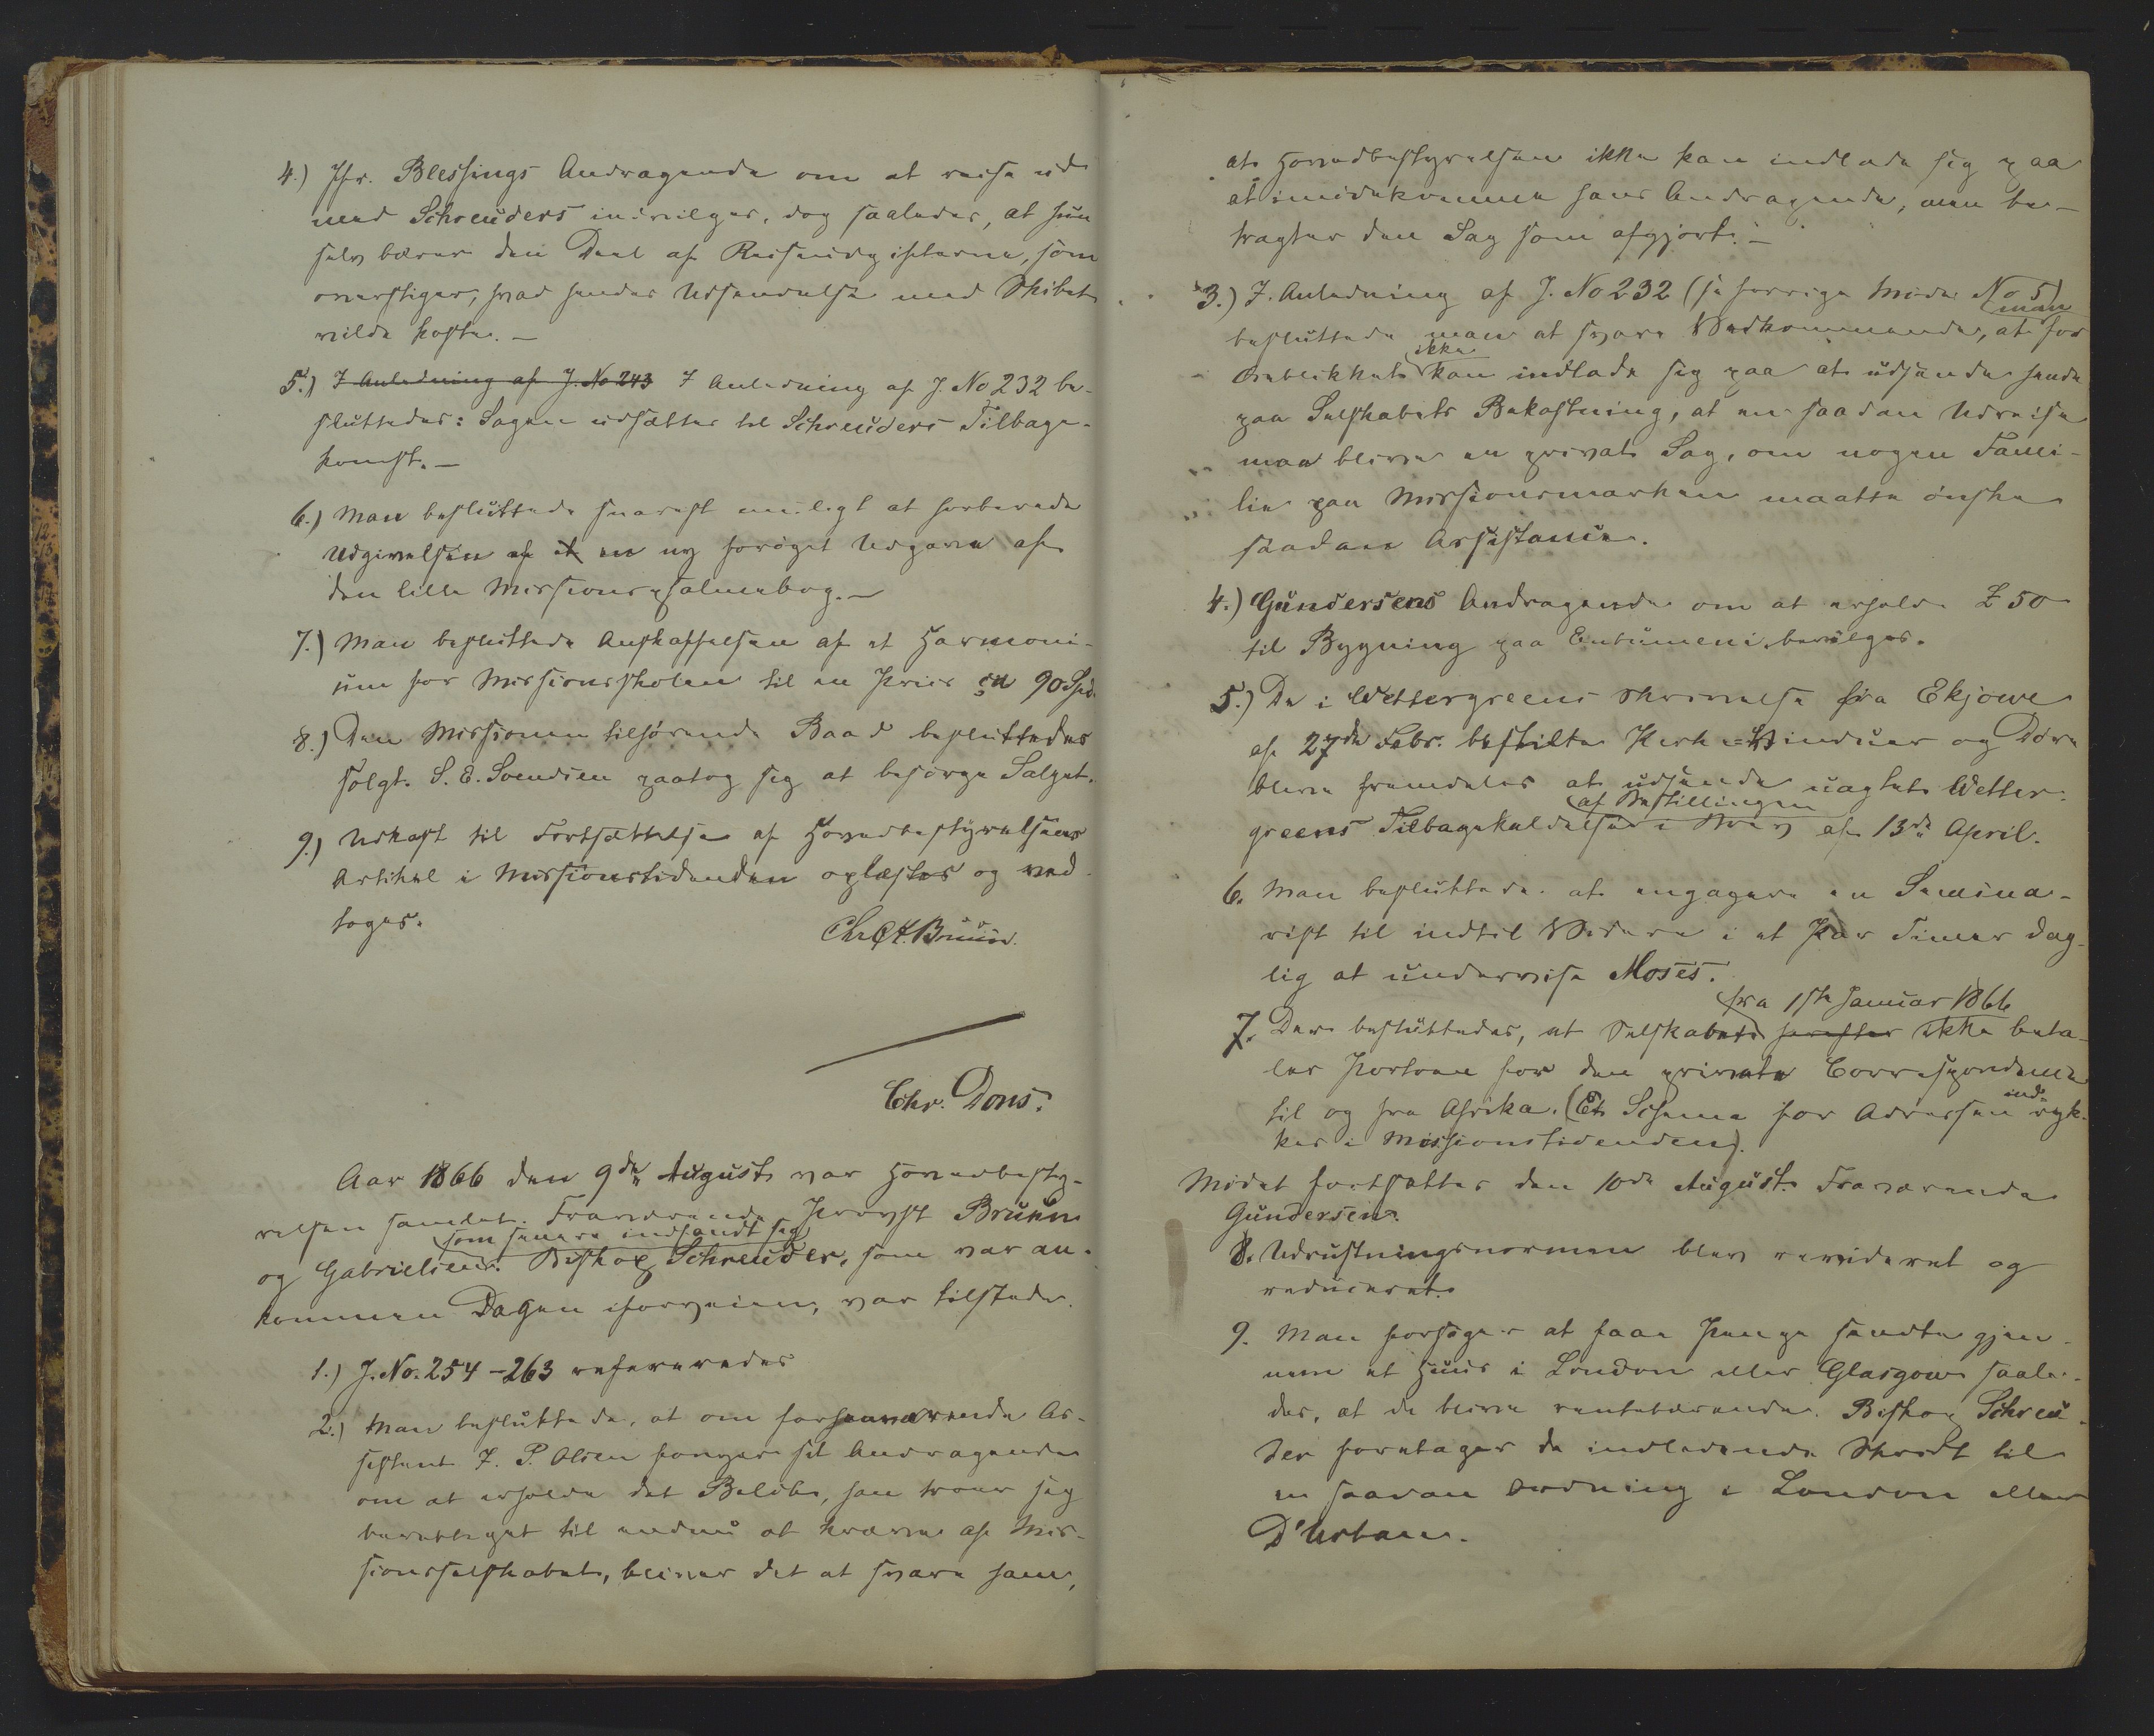 4.) Jfr. Blessings Andragende om at reise ud
med Schreuders indvilges, dog saaledes, at hun
selv bærer den Deel af Reiseudgifterne, som
overstiger, hvad hendes Udsendelse med Skibet
vilde koste. —
5.) I Anledning af J. No 243 I Anledning af J. No 232 be-
sluttedes: Sagen udsættes til Schreuders Tilbage-
komst. —
6.) Man besluttede snarest muligt at forberede
Udgivelsen af et en ny forøget Udgave af
den lille Missionspsalmebog. —
7.) Man besluttede Anskaffelsen af et Harmoni-
um for Missionsskolen til en Priis ca 90 Spd.
8.) Den Missionen tilhørende Baad besluttedes
solgt. S. E. Svendsen paatog sig at besørge Salget.
9.) Udkast til Fortsættelse af Hovedbestyrelsens
Artikel i Missionstidenden oplæstes og ved-
toges.
Chr. Bruun.
Chr. Dons.
Aar 1866 den 9de August var Hovedbesty-
relsen samlet. Fraværende Provst Bruun
som senere indfandt sig
og Gabrielsen. Biskop Schreuder, som var an-
kommen Dagen iforveien, var tilstede.
1.) J. No. 254 - 263 refereredes
2.) Man besluttede, at om forhenværende As-
sistent J. P. Olsen fornyer sit Andragende
om at erholde det Beløb, han troer sig
berettiget til endnu at kræve af Mis-
sionsselskabet, bliver det at svare ham,
at Hovedbestyrelsen ikke kan indlade sig paa
at imødekomme hans Andragende, men be-
tragter den Sag som afgjort. —
3.) I Anledning af J. No 232 (se forrige Møde No 5)
man
besluttede man at svare Vedkommende, at for
ikke
Øieblikket kan indlade sig paa at udsende hende
paa Selskabets Bekostning, at en saadan Udreise
maa blive en privat Sag, om nogen Fami-
lie paa Missionsmarken maatte ønske
saadan Assistance.
4.) Gundersens Andragende om at erholde £ 50
til Bygning paa Entumeni bevilges.
5.) De i Wettergreens Skrivelse fra Ekjowe
af 27de Febr. bestilte Kirke-Vinduer og Døre
blive fremdeles at udsende uagtet Wetter-
af Bestillingen
greens Tilbagekaldelse i Brev af 13de April.
6. Man besluttede at engagere en Semina-
rist til indtil Videre i et Par Timer dag-
lig at undervise Moses.
fra 1ste Januar 1866
7. Der besluttedes, at Selskabet herefter ikke beta-
ler Portoen for den private Correspondence
til og fra Afrika. (Et Schema for Adressen
ind-
ryk-
kes i Missionstidenden).
Mødet fortsattes den 10de August. Fraværende
Gundersen.
8. Udrustningsnormen blev revideret og
reduceret.
9. Man forsøger at faae Penge sendte gjen-
nem et Huus i London eller Glasgow saale-
des, at de blive rentebærende. Biskop Schreu-
der foretager de indledende Skridt til
en saadan Ordning i London eller
D'Urban.